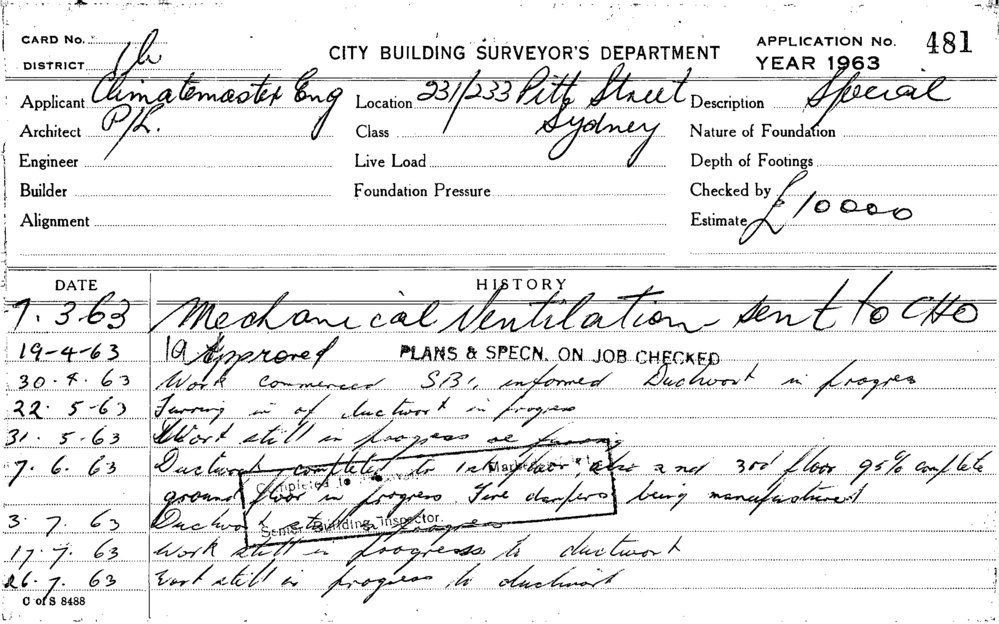 CARD No.
CITY BUILDING SURVEYOR'S DEPARTMENT
APPLICATION No. 481
DISTRICT
YEAR 1963
Applicant Climatemaster Eng P/L.
Location 231/233 Pitt Street Sydney
Description Special
Architect
Class
Nature of Foundation
Engineer
Live Load
Depth of Footings
Builder
Foundation Pressure
Checked by
Alignment
Estimate £10000
DATE HISTORY
7.3.63 Mechanical Ventilation sent to CHO
19-4-63 Approved PLANS & SPECN. ON JOB CHECKED
30.4.63 Work commenced SBI, informed Ductwork in progress
22.5-63 Furring in of ductwork in progress
31.5-63 Work still in progress re furring
7.6.63 Ductwork completed to 1st floor also 2nd 3rd floor 95% complete
ground floor in progress Fire dampers being manufactured
Completed to
Senior Building Inspector.
3.7.63 Ductwork still in progress
17.7.63 Work still in progress to ductwork
26.7.63 Work still in progress to ductwork
C of S 8488